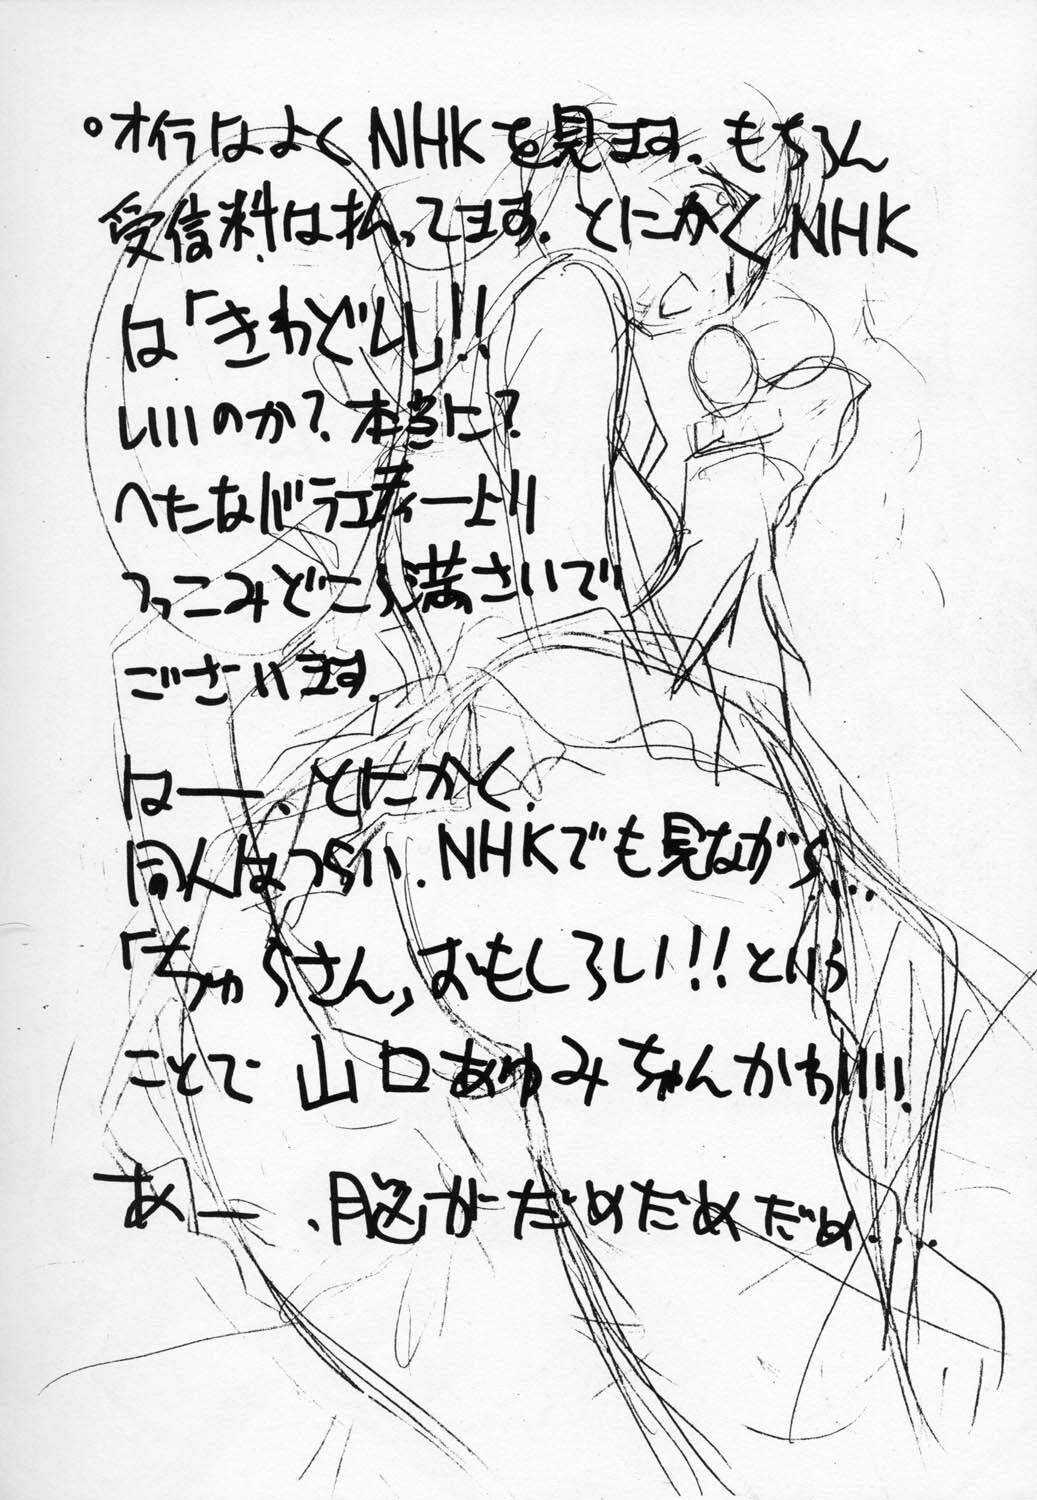 。オイラはよくNHKを見ます。もちろん
受信料は払ってます。とにかくNHK
は「きわどい」!!
いいのか?本当に?
へたなバラエティーより
つっこみどころ満さいで
ございます。
はー、とにかく、
同人はつらい。NHKでも見ながら...
「ちゅらさん」おもしろい!!という
ことで山口あゆみちゃんかわいい。
あー、脳がだめだめだめ....